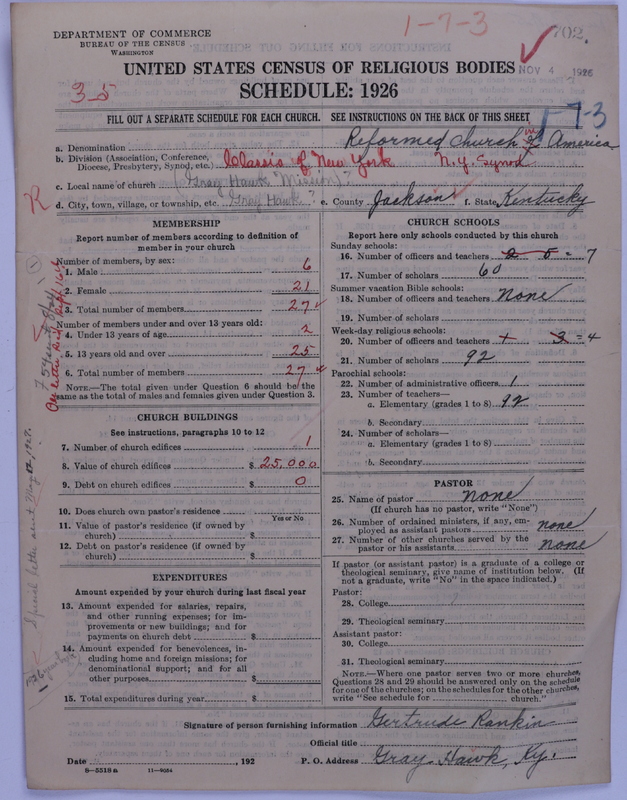 1-7-3
702.
DEPARTMENT OF COMMERCE
BUREAU OF THE CENSUS
WASHINGTON
UNITED STATES CENSUS OF RELIGIOUS BODIES
NOV 4 1926
SCHEDULE: 1926
35
1-7-3
FILL OUT A SEPARATE SCHEDULE FOR EACH CHURCH. SEE INSTRUCTIONS ON THE BACK OF THIS SHEET
a. Denomination Reformed Church in America
b. Division (Association, Conference, Diocese, Presbytery, Synod, etc.) Classis of New York N.Y. Synod
c. Local name of church (Gray Hawk Mission)?
R
d. City, town, village, or township, etc. Gray Hawk? e. County Jackson f. State Kentucky
MEMBERSHIP
Report number of members according to definition of member in your church
Number of members, by sex:
1. Male 6
2. Female 21
3. Total number of members 27
Number of members under and over 13 years old:
4. Under 13 years of age 2
5. 13 years old and over 25
6. Total number of members 27
NOTE.—The total given under Question 6 should be the same as the total of males and females given under Question 3.
CHURCH BUILDINGS
See instructions, paragraphs 10 to 12
7. Number of church edifices 1
8. Value of church edifices $ 25,000
9. Debt on church edifices $ 0
10. Does church own pastor's residence
Yes or No
11. Value of pastor's residence (if owned by church) $
12. Debt on pastor's residence (if owned by church) $
EXPENDITURES
Amount expended by your church during last fiscal year
13. Amount expended for salaries, repairs, and other running expenses; for improvements or new buildings; and for payments on church debt $
14. Amount expended for benevolences, including home and foreign missions; for denominational support; and for all other purposes $
15. Total expenditures during year $
CHURCH SCHOOLS
Report here only schools conducted by this church
Sunday schools:
16. Number of officers and teachers 2 5 = 7
17. Number of scholars 60
Summer vacation Bible schools:
18. Number of officers and teachers None
19. Number of scholars
Week-day religious schools:
20. Number of officers and teachers 1 3 = 4
21. Number of scholars 92
Parochial schools:
22. Number of administrative officers 1
23. Number of teachers—
a. Elementary (grades 1 to 8) 92
b. Secondary
24. Number of scholars—
a. Elementary (grades 1 to 8)
b. Secondary
PASTOR
25. Name of pastor none
(If church has no pastor, write "None")
26. Number of ordained ministers, if any, employed as assistant pastors none
27. Number of other churches served by the pastor or his assistants none
If pastor (or assistant pastor) is a graduate of a college or theological seminary, give name of institution below. (If not a graduate, write "No" in the space indicated.)
Pastor:
28. College
29. Theological seminary
Assistant pastor:
30. College
31. Theological seminary
NOTE.—Where one pastor serves two or more churches, Questions 28 and 29 should be answered only on the schedule for one of the churches; on the schedules for the other churches, write "See schedule for church."
Signature of person furnishing information Gertrude Rankin
Official title
Date , 192
P. O. Address Gray Hawk, Ky.
8-5518a 11-9054
Special letter sent May 1928.